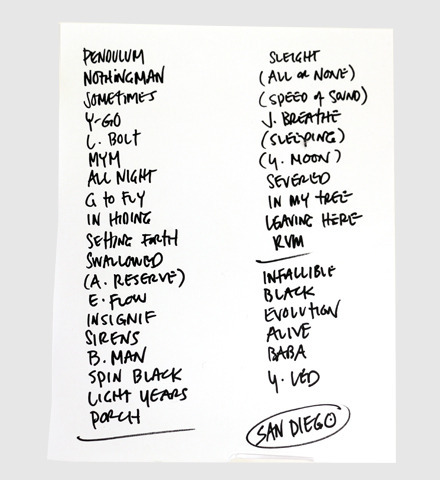 PENDULUM
NOTHINGMAN
SOMETIMES
Y-GO
L. BOLT
MYM
ALL NIGHT
G to FLY
IN HIDING
SETTING FORTH
SWALLOWED
(A. RESERVE)
E. FLOW
INSIGNIF
SIRENS
B. MAN
SPIN BLACK
LIGHT YEARS
PORCH
SLEIGHT
(ALL OR NONE)
(SPEED of SOUND)
J. BREATHE
(SLEEPING)
(Y. MOON)
SEVERED
IN MY TREE
LEAVING HERE
RVM
INFALLIBLE
BLACK
EVOLUTION
ALIVE
BABA
Y. LED
SAN DIEGO